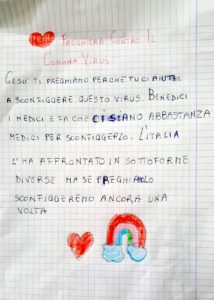 PREGHIERA CONTRO IL
CORONA VIRUS
GESU' TI PREGHIAMO PERCHÉ TU CI AIUTI
A SCONFIGGERE QUESTO VIRUS. BENEDICI
I MEDICI E FA CHE CI SIANO ABBASTANZA
MEDICI PER SCONFIGGERLO. L'ITALIA
L'HA AFFRONTATO IN SOTTOFORME
DIVERSE MA SE PREGHIAMO
SCONFIGGEREMO ANCORA UNA
VOLTA